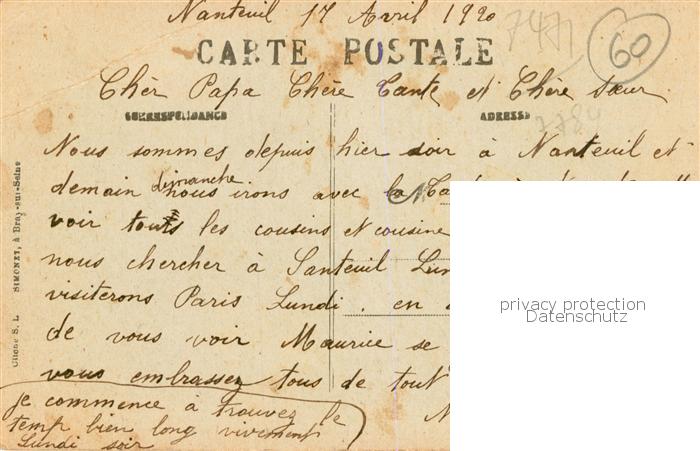 Nanteuil 17 Avril 1920
7471
60
CARTE POSTALE
Chèr Papa Chère Tante et Chère sœur
CORRESPONDANCE
ADRESSE
7784
Nous sommes depuis hier soir à Nanteuil et
demain dimanche nous irons avec la
voir touts les cousins et cousine
nous chercher à Santeuil Lun
visiterons Paris Lundi. en
de vous voir Maurice se
vous embrassez tous de tout
N
je commence à trouvez le
temp bien long vivement
Lundi soir
Cliché S. L. SIMONET, à Bray-sur-Seine
privacy protection
Datenschutz